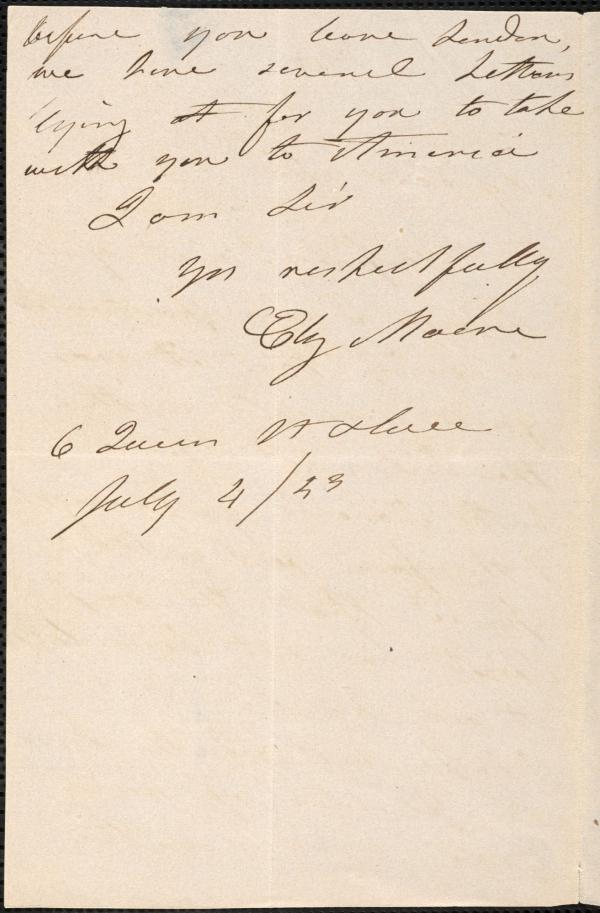 before you leave London,
we have several Letters
lying at for you to take
with you to America
I am Sir
yrs respectfully
Ely Moore
6 Queen St Place
July 4/23